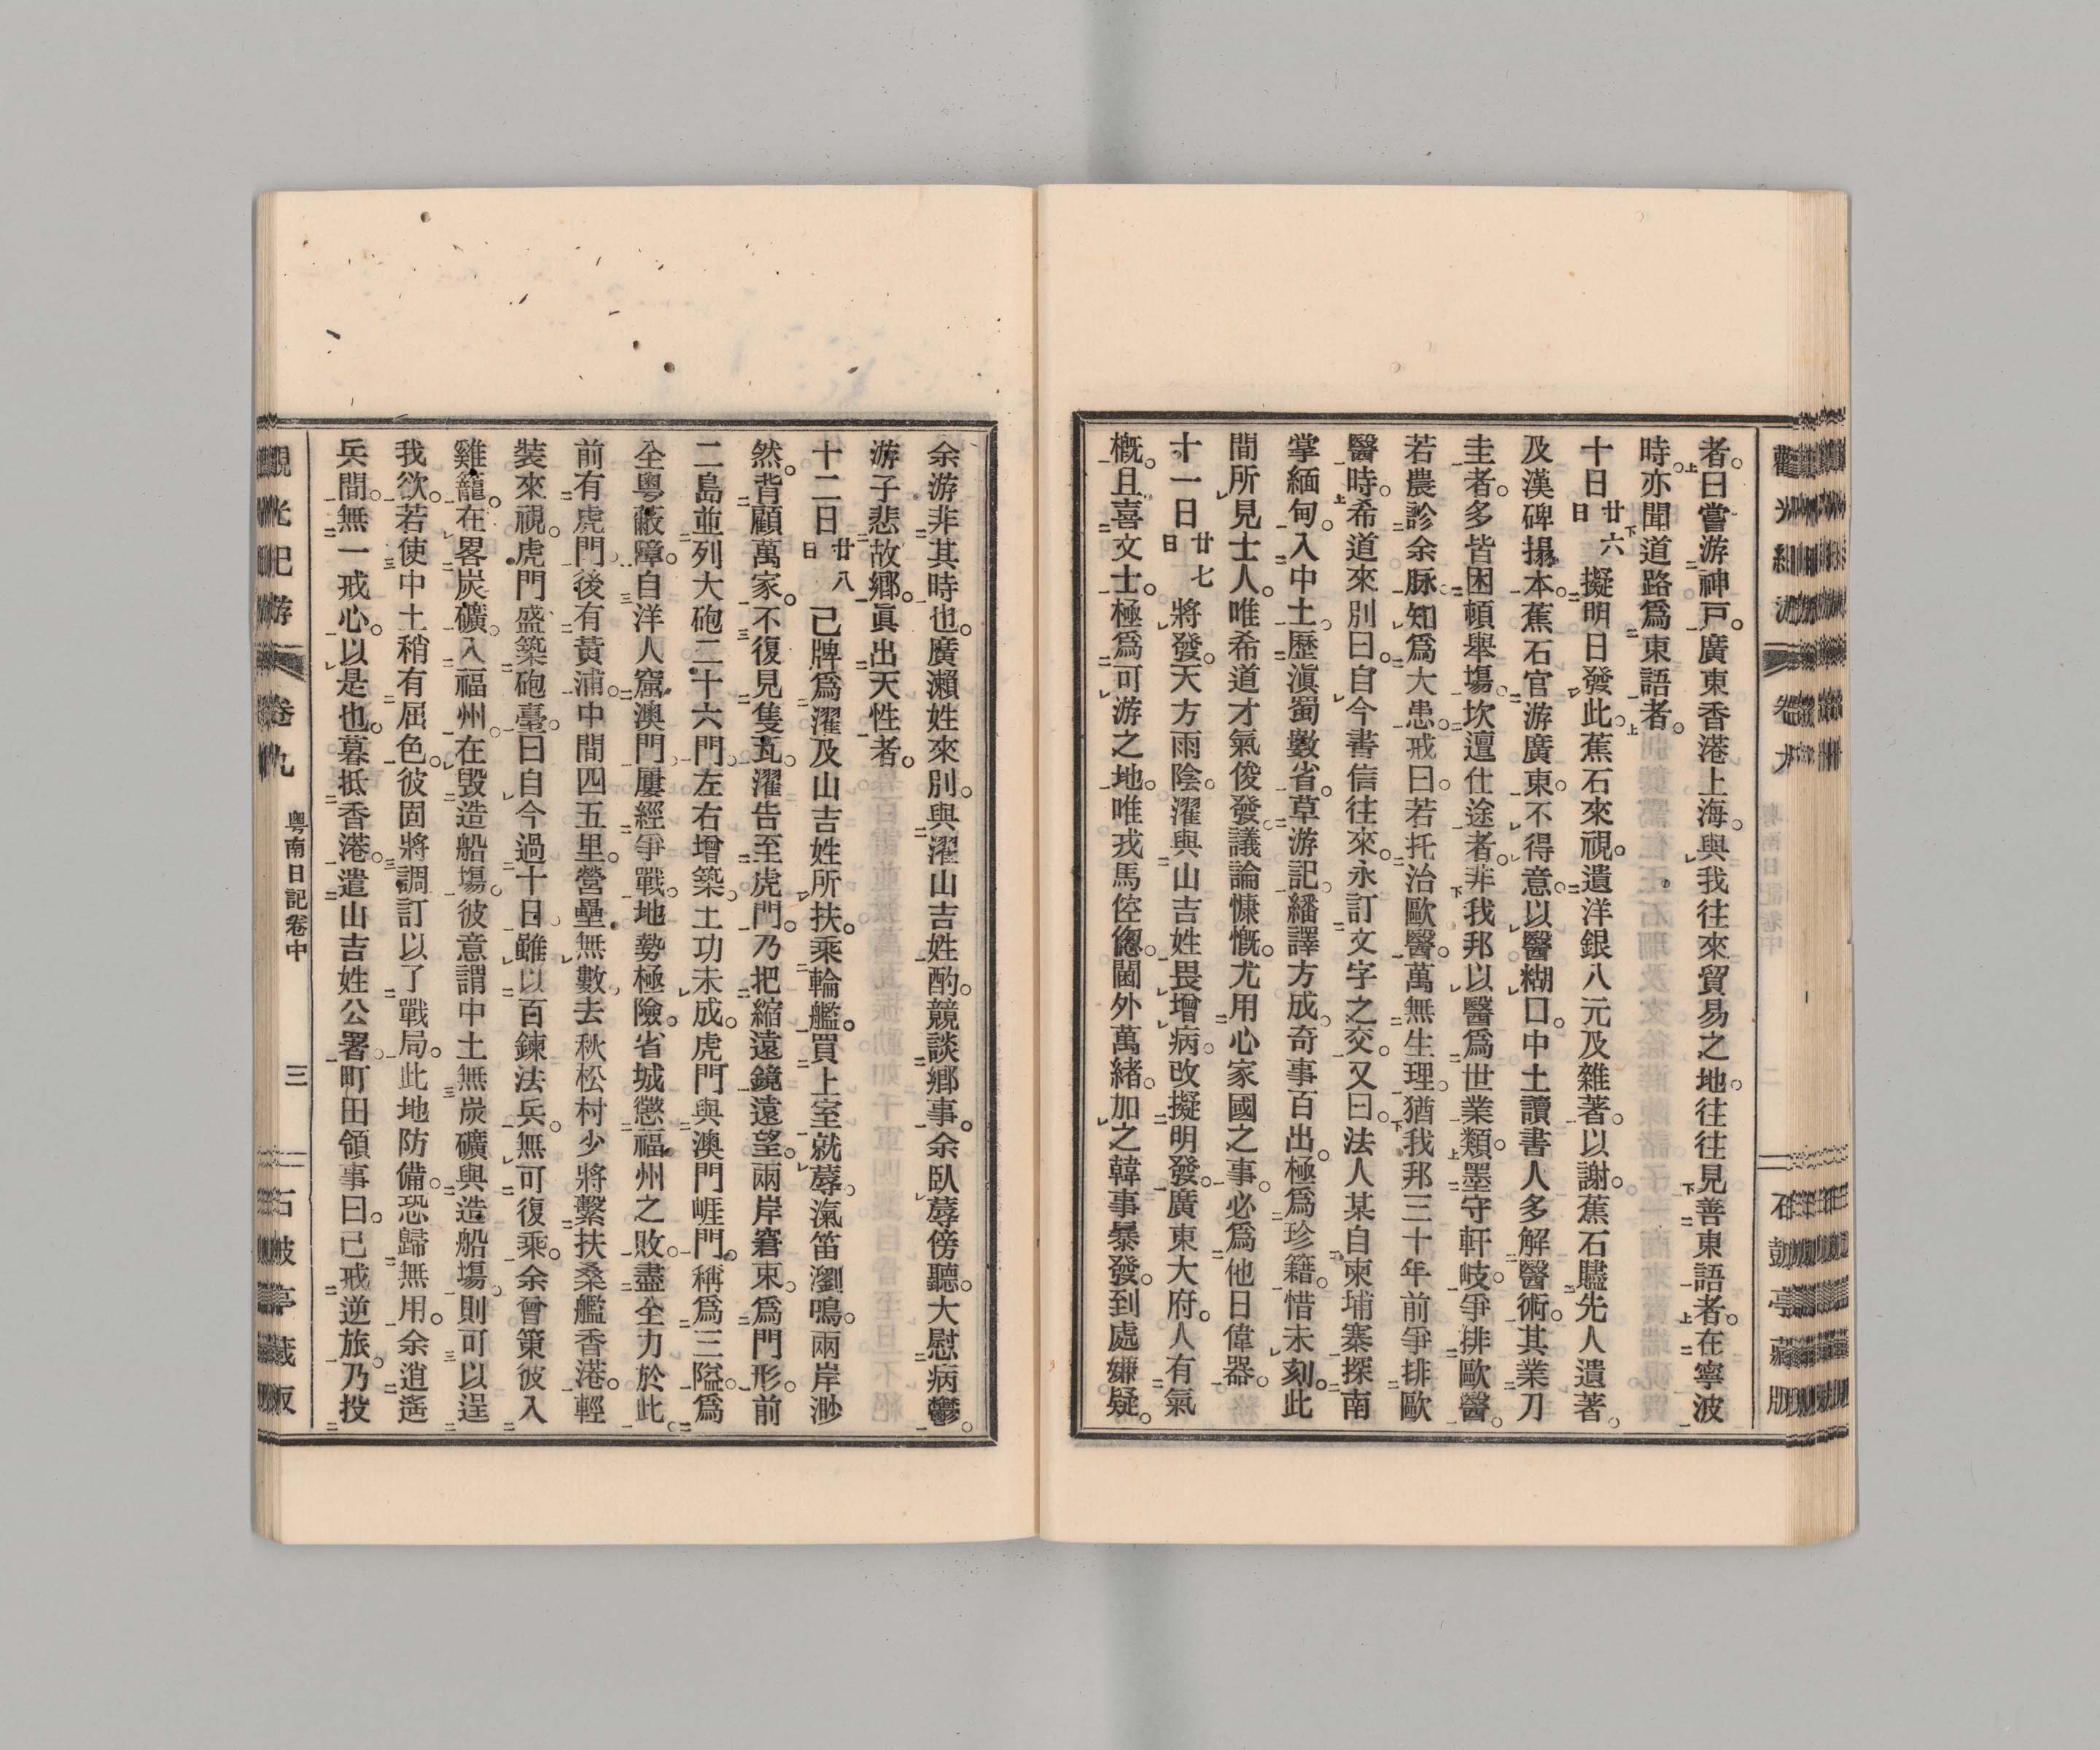 者。曰嘗游神戸。廣東香港上海。與我往來貿易之地。往往見善東語者。在寧波
時。亦聞道路爲東語者。
十日廿六日擬明日發此。蕉石來視。遺洋銀八元及雜著。以謝。蕉石贐先人遺著。
及漢碑搨本。蕉石官游廣東。不得意。以醫糊口。中土讀書人多解醫術。其業刀
圭者。多皆困頓舉塲。坎邅仕途者。非我邦以醫爲世業類。墨守軒岐。爭排歐醫。
若農診余脉。知爲大患。戒曰。若托治歐醫。萬無生理。猶我邦三十年前爭排歐
醫時。希道來別曰。自今書信往來。永訂文字之交。又曰。法人某自柬埔寨探南
掌緬甸。入中土。歷滇蜀數省。草游記。繙譯方成。奇事百出。極爲珍籍。惜未刻。此
間所見士人。唯希道才氣俊發。議論慷慨。尤用心家國之事。必爲他日偉器。
十一日廿七日將發。天方雨陰。濯與山吉姓畏增病。改擬明發。廣東大府。人有氣
槪。且喜文士。極爲可游之地。唯戎馬倥傯。閫外萬緒。加之韓事暴發。到處嫌疑。
余游非其時也。廣瀨姓來別。與濯山吉姓酌。競談鄕事。余臥蓐傍聽。大慰病鬱。
游子悲故鄕。眞出天性者。
十二日廿八日己牌爲濯及山吉姓所扶。乘輪艦。買上室就蓐。滊笛瀏鳴。兩岸渺
然。背顧萬家。不復見隻瓦。濯告至虎門。乃把縮遠鏡遠望。兩岸窘束。爲門形。前
二島並列大砲二十六門。左右增築。土功未成。虎門與澳門崕門。稱爲三隘。爲
全粵蔽障。自洋人窟澳門屢經爭戰。地勢極險。省城懲福州之敗。盡全力於此。
前有虎門。後有黃浦。中間四五里。營壘無數。去秋松村少將繫扶桑艦香港。輕
裝來視。虎門盛築砲臺。曰自今過十日。雖以百鍊法兵。無可復乘。余曾策彼入
雞籠。在畧炭礦。入福州。在毀造船塲。彼意謂中土無炭礦與造船塲。則可以逞
我欲。若使中土稍有屈色。彼固將調訂以了戰局。此地防備。恐歸無用。余逍遙
兵間。無一戒心。以是也。暮抵香港。遣山吉姓公署。町田領事曰。已戒逆旅。乃投
觀光紀游
卷九
粵南日記卷中
三